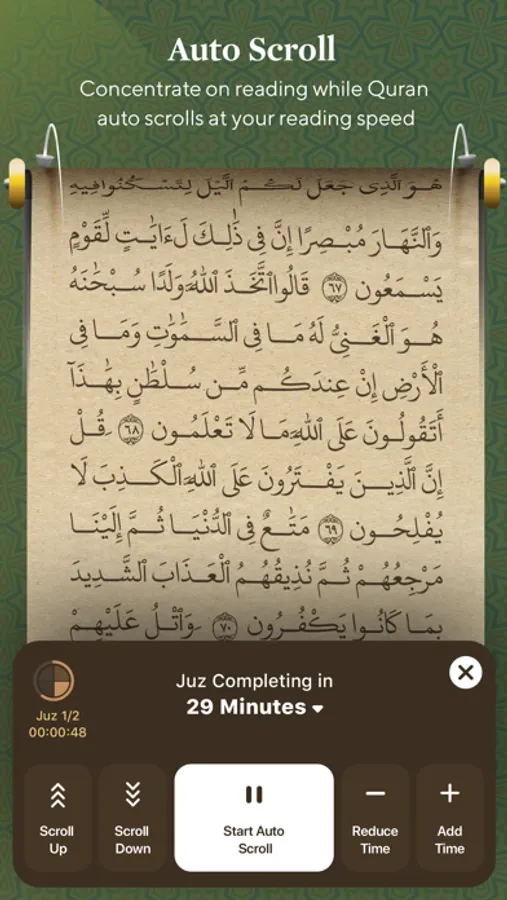 Auto Scroll
Concentrate on reading while Quran
auto scrolls at your reading speed
هُوَ ٱلَّذِى جَعَلَ لَكُمُ ٱلَّيْلَ لِتَسْكُنُوا۟ فِيهِ
وَٱلنَّهَارَ مُبْصِرًا إِنَّ فِى ذَٰلِكَ لَـَٔايَـٰتٍ لِّقَوْمٍ
يَسْمَعُونَ ٦٧ قَالُوا۟ ٱتَّخَذَ ٱللَّهُ وَلَدًا سُبْحَـٰنَهُۥ
هُوَ ٱلْغَنِىُّ لَهُۥ مَا فِى ٱلسَّمَـٰوَٰتِ وَمَا فِى
ٱلْأَرْضِ إِنْ عِندَكُم مِّن سُلْطَـٰنٍۭ بِهَـٰذَآ
أَتَقُولُونَ عَلَى ٱللَّهِ مَا لَا تَعْلَمُونَ ٦٨ قُلْ
إِنَّ ٱلَّذِينَ يَفْتَرُونَ عَلَى ٱللَّهِ ٱلْكَذِبَ لَا
يُفْلِحُونَ ٦٩ مَتَـٰعٌ فِى ٱلدُّنْيَا ثُمَّ إِلَيْنَا
مَرْجِعُهُمْ ثُمَّ نُذِيقُهُمُ ٱلْعَذَابَ ٱلشَّدِيدَ
بِمَا كَانُوا۟ يَكْفُرُونَ ٧٠ وَٱتْلُ عَلَيْهِمْ
Juz Completing in
29 Minutes
Juz 1/2
00:00:48
Scroll
Up
Scroll
Down
Start Auto
Scroll
Reduce
Time
Add
Time